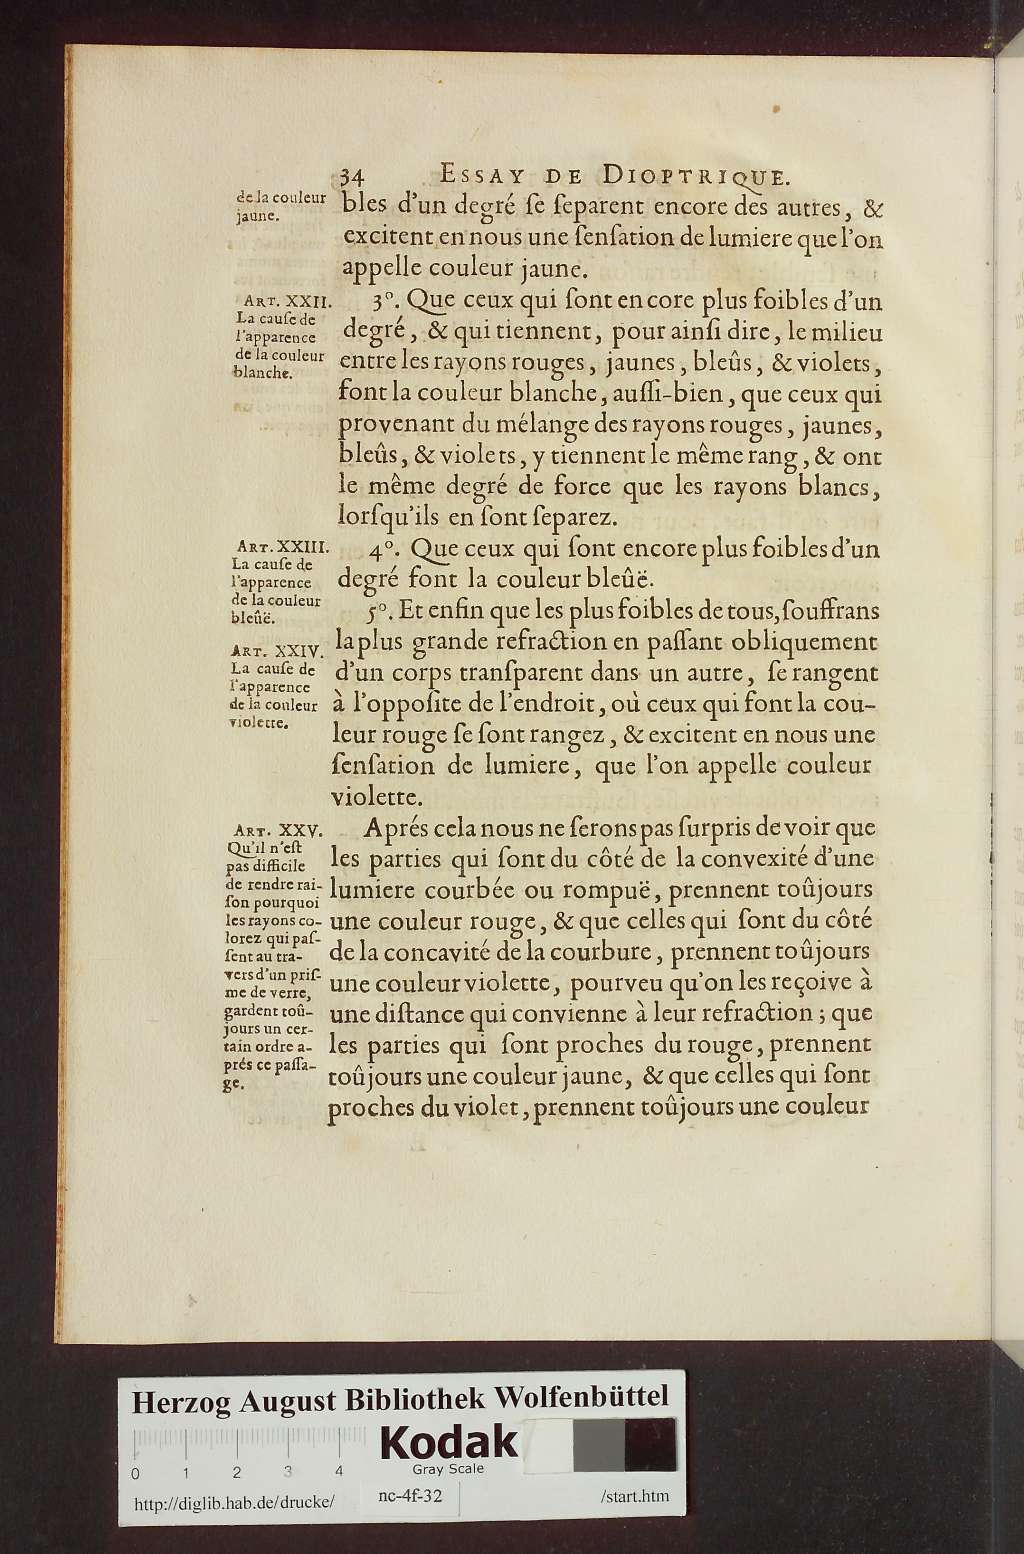 34 ESSAY DE DIOPTRIQUE.
de la couleur
jaune.
bles d'un degré ſe ſeparent encore des autres, &
excitent en nous une ſenſation de lumiere que l'on
appelle couleur jaune.
ART. XXII.
La cauſe de
l'apparence
de la couleur
blanche.
3°. Que ceux qui ſont encore plus foibles d'un
degré, & qui tiennent, pour ainſi dire, le milieu
entre les rayons rouges, jaunes, bleûs, & violets,
font la couleur blanche, auſſi-bien, que ceux qui
provenant du mélange des rayons rouges, jaunes,
bleûs, & violets, y tiennent le même rang, & ont
le même degré de force que les rayons blancs,
lorſqu'ils en ſont ſeparez.
ART. XXIII.
La cauſe de
l'apparence
de la couleur
bleûë.
4°. Que ceux qui ſont encore plus foibles d'un
degré font la couleur bleûë.
ART. XXIV.
La cauſe de
l'apparence
de la couleur
violette.
5°. Et enfin que les plus foibles de tous, ſouffrans
la plus grande refraction en paſſant obliquement
d'un corps tranſparent dans un autre, ſe rangent
à l'oppoſite de l'endroit, où ceux qui font la cou-
leur rouge ſe ſont rangez, & excitent en nous une
ſenſation de lumiere, que l'on appelle couleur
violette.
ART. XXV.
Qu'il n'eſt
pas difficile
de rendre rai-
ſon pourquoi
les rayons co-
lorez qui paſ-
ſent au tra-
vers d'un priſ-
me de verre,
gardent toû-
jours un cer-
tain ordre a-
prés ce paſſa-
ge.
Aprés cela nous ne ſerons pas ſurpris de voir que
les parties qui ſont du côté de la convexité d'une
lumiere courbée ou rompuë, prennent toûjours
une couleur rouge, & que celles qui ſont du côté
de la concavité de la courbure, prennent toûjours
une couleur violette, pourveu qu'on les reçoive à
une diſtance qui convienne à leur refraction; que
les parties qui ſont proches du rouge, prennent
toûjours une couleur jaune, & que celles qui ſont
proches du violet, prennent toûjours une couleur
Herzog August Bibliothek Wolfenbüttel
Kodak
Gray Scale
0 1 2 3 4
http://diglib.hab.de/drucke/ nc-4f-32 /start.htm